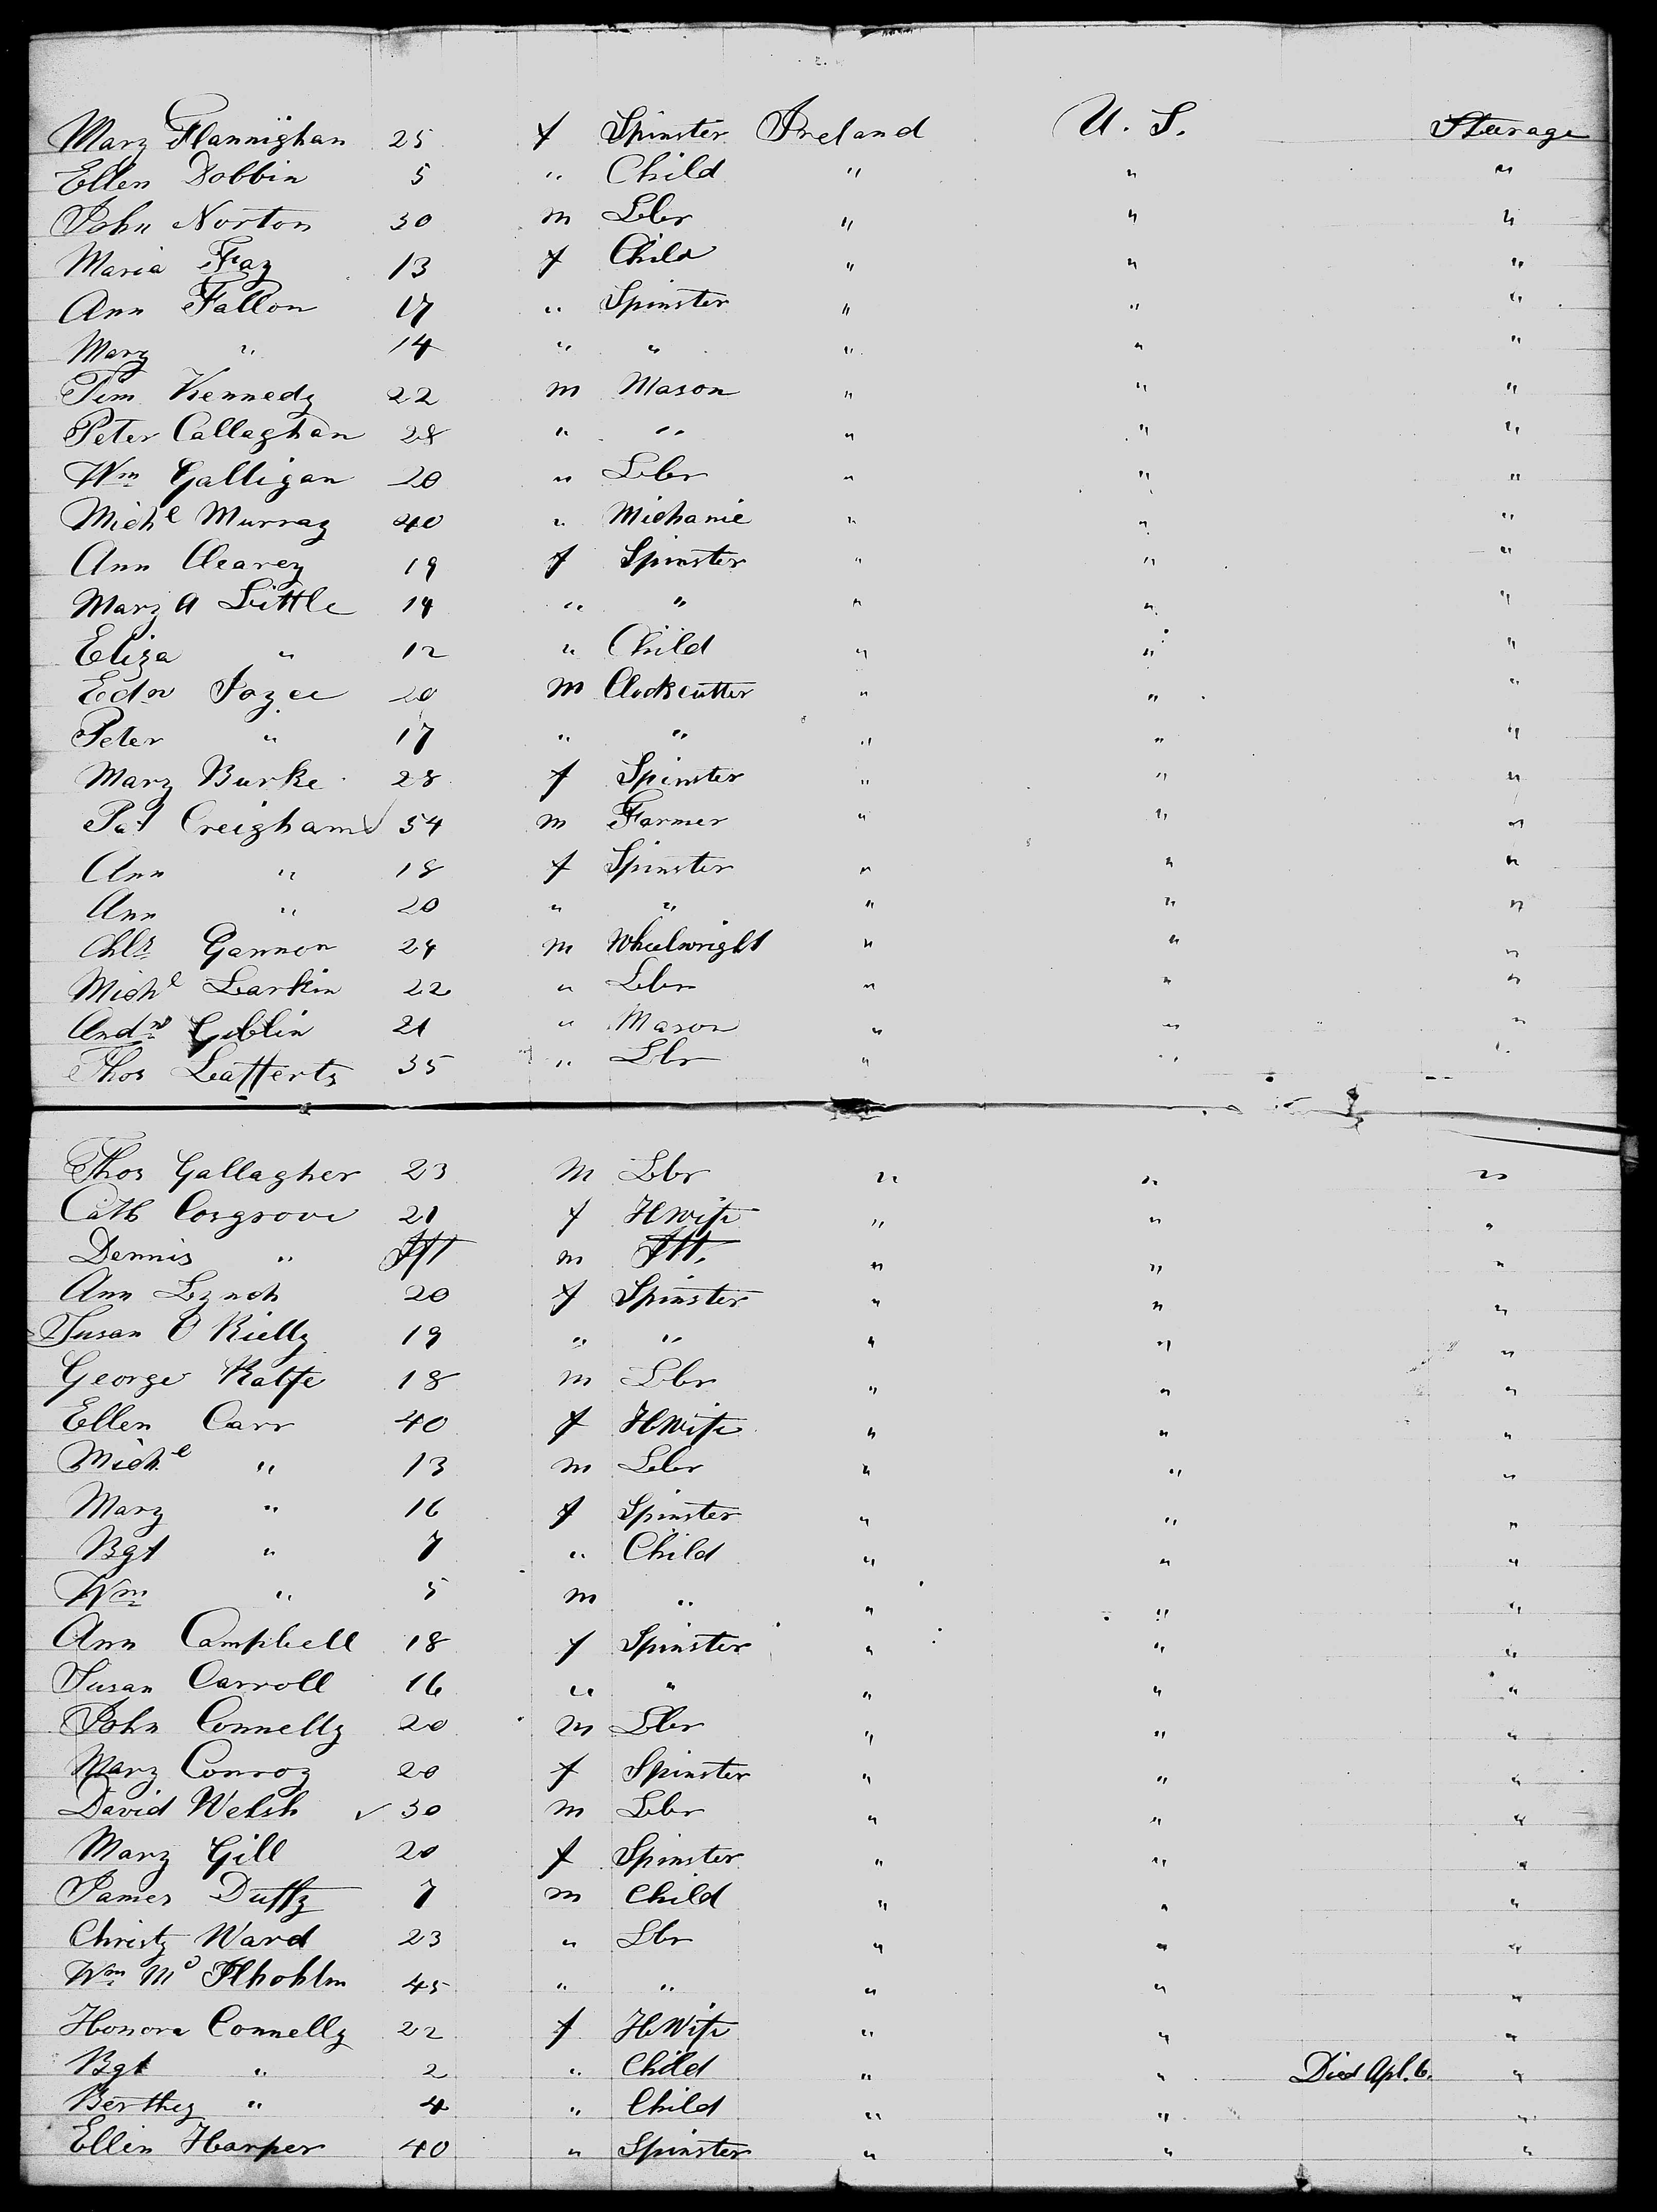 Mary Flannighan 25 f Spinster Ireland U. S. Steerage
Ellen Dobbin 5 " Child " " "
John Norton 30 m Lbr " " "
Maria Fay 13 f Child " " "
Ann Fallon 17 " Spinster " " "
Mary " 14 " " " " "
Tim Kennedy 22 m Mason " " "
Peter Callaghan 28 " " " " "
Wm Galligan 20 " Lbr " " "
Michl Murray 40 " Michanic " " "
Ann Clearey 19 f Spinster " " "
Mary A Little 14 " " " " "
Eliza " 12 " Child " " "
Edw Joyce 20 m Clockcutter " " "
Peter " 17 " " " " "
Mary Burke 28 f Spinster " " "
Pat Creigham ✓ 54 m Farmer " " "
Ann " 18 f Spinster " " "
Ann " 20 " " " " "
Chls Gannon 24 m Wheelwright " " "
Michl Larkin 22 " Lbr " " "
Andw Giblin 21 " Mason " " "
Thos Lafferty 35 " Lbr " " "
Thos Gallagher 23 m Lbr " " "
Cath Cosgrove 21 f HWife " " "
Dennis " Jft m Jft. " " "
Ann Lynch 20 f Spinster " " "
Susan O Rielly 19 " " " " "
George Ralfe 18 m Lbr " " "
Ellen Carr 40 f HWife " " "
Michl " 13 m Lbr " " "
Mary " 16 f Spinster " " "
Bgt " 7 " Child " " "
Wm " 5 m " " " "
Ann Campbell 18 f Spinster " " "
Susan Carroll 16 " " " " "
John Connelly 20 m Lbr " " "
Mary Conroy 20 f Spinster " " "
David Welsh ✓ 30 m Lbr " " "
Mary Gill 20 f Spinster " " "
James Duffy 7 m Child " " "
Christy Ward 23 " Lbr " " "
Wm Mc 45 " " " " "
Honora Connelly 22 f HWife " " "
Bgt " 2 " Child " " Died Apl. 6. "
Berthey " 4 " Child " " "
Ellen Harper 40 " Spinster " " "